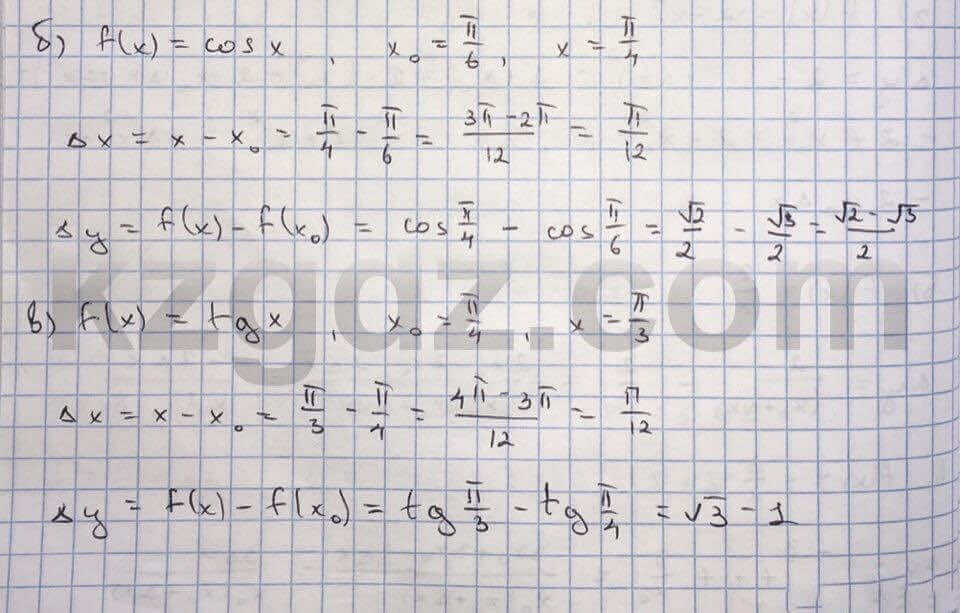 б) f(x) = cos x , x₀ = π/6 , x = π/4
Δx = x - x₀ = π/4 - π/6 = (3π - 2π)/12 = π/12
Δy = f(x) - f(x₀) = cos π/4 - cos π/6 = √2/2 - √3/2 = (√2 - √3)/2
в) f(x) = tg x , x₀ = π/4 , x = π/3
Δx = x - x₀ = π/3 - π/4 = (4π - 3π)/12 = π/12
Δy = f(x) - f(x₀) = tg π/3 - tg π/4 = √3 - 1
kzgdz.com